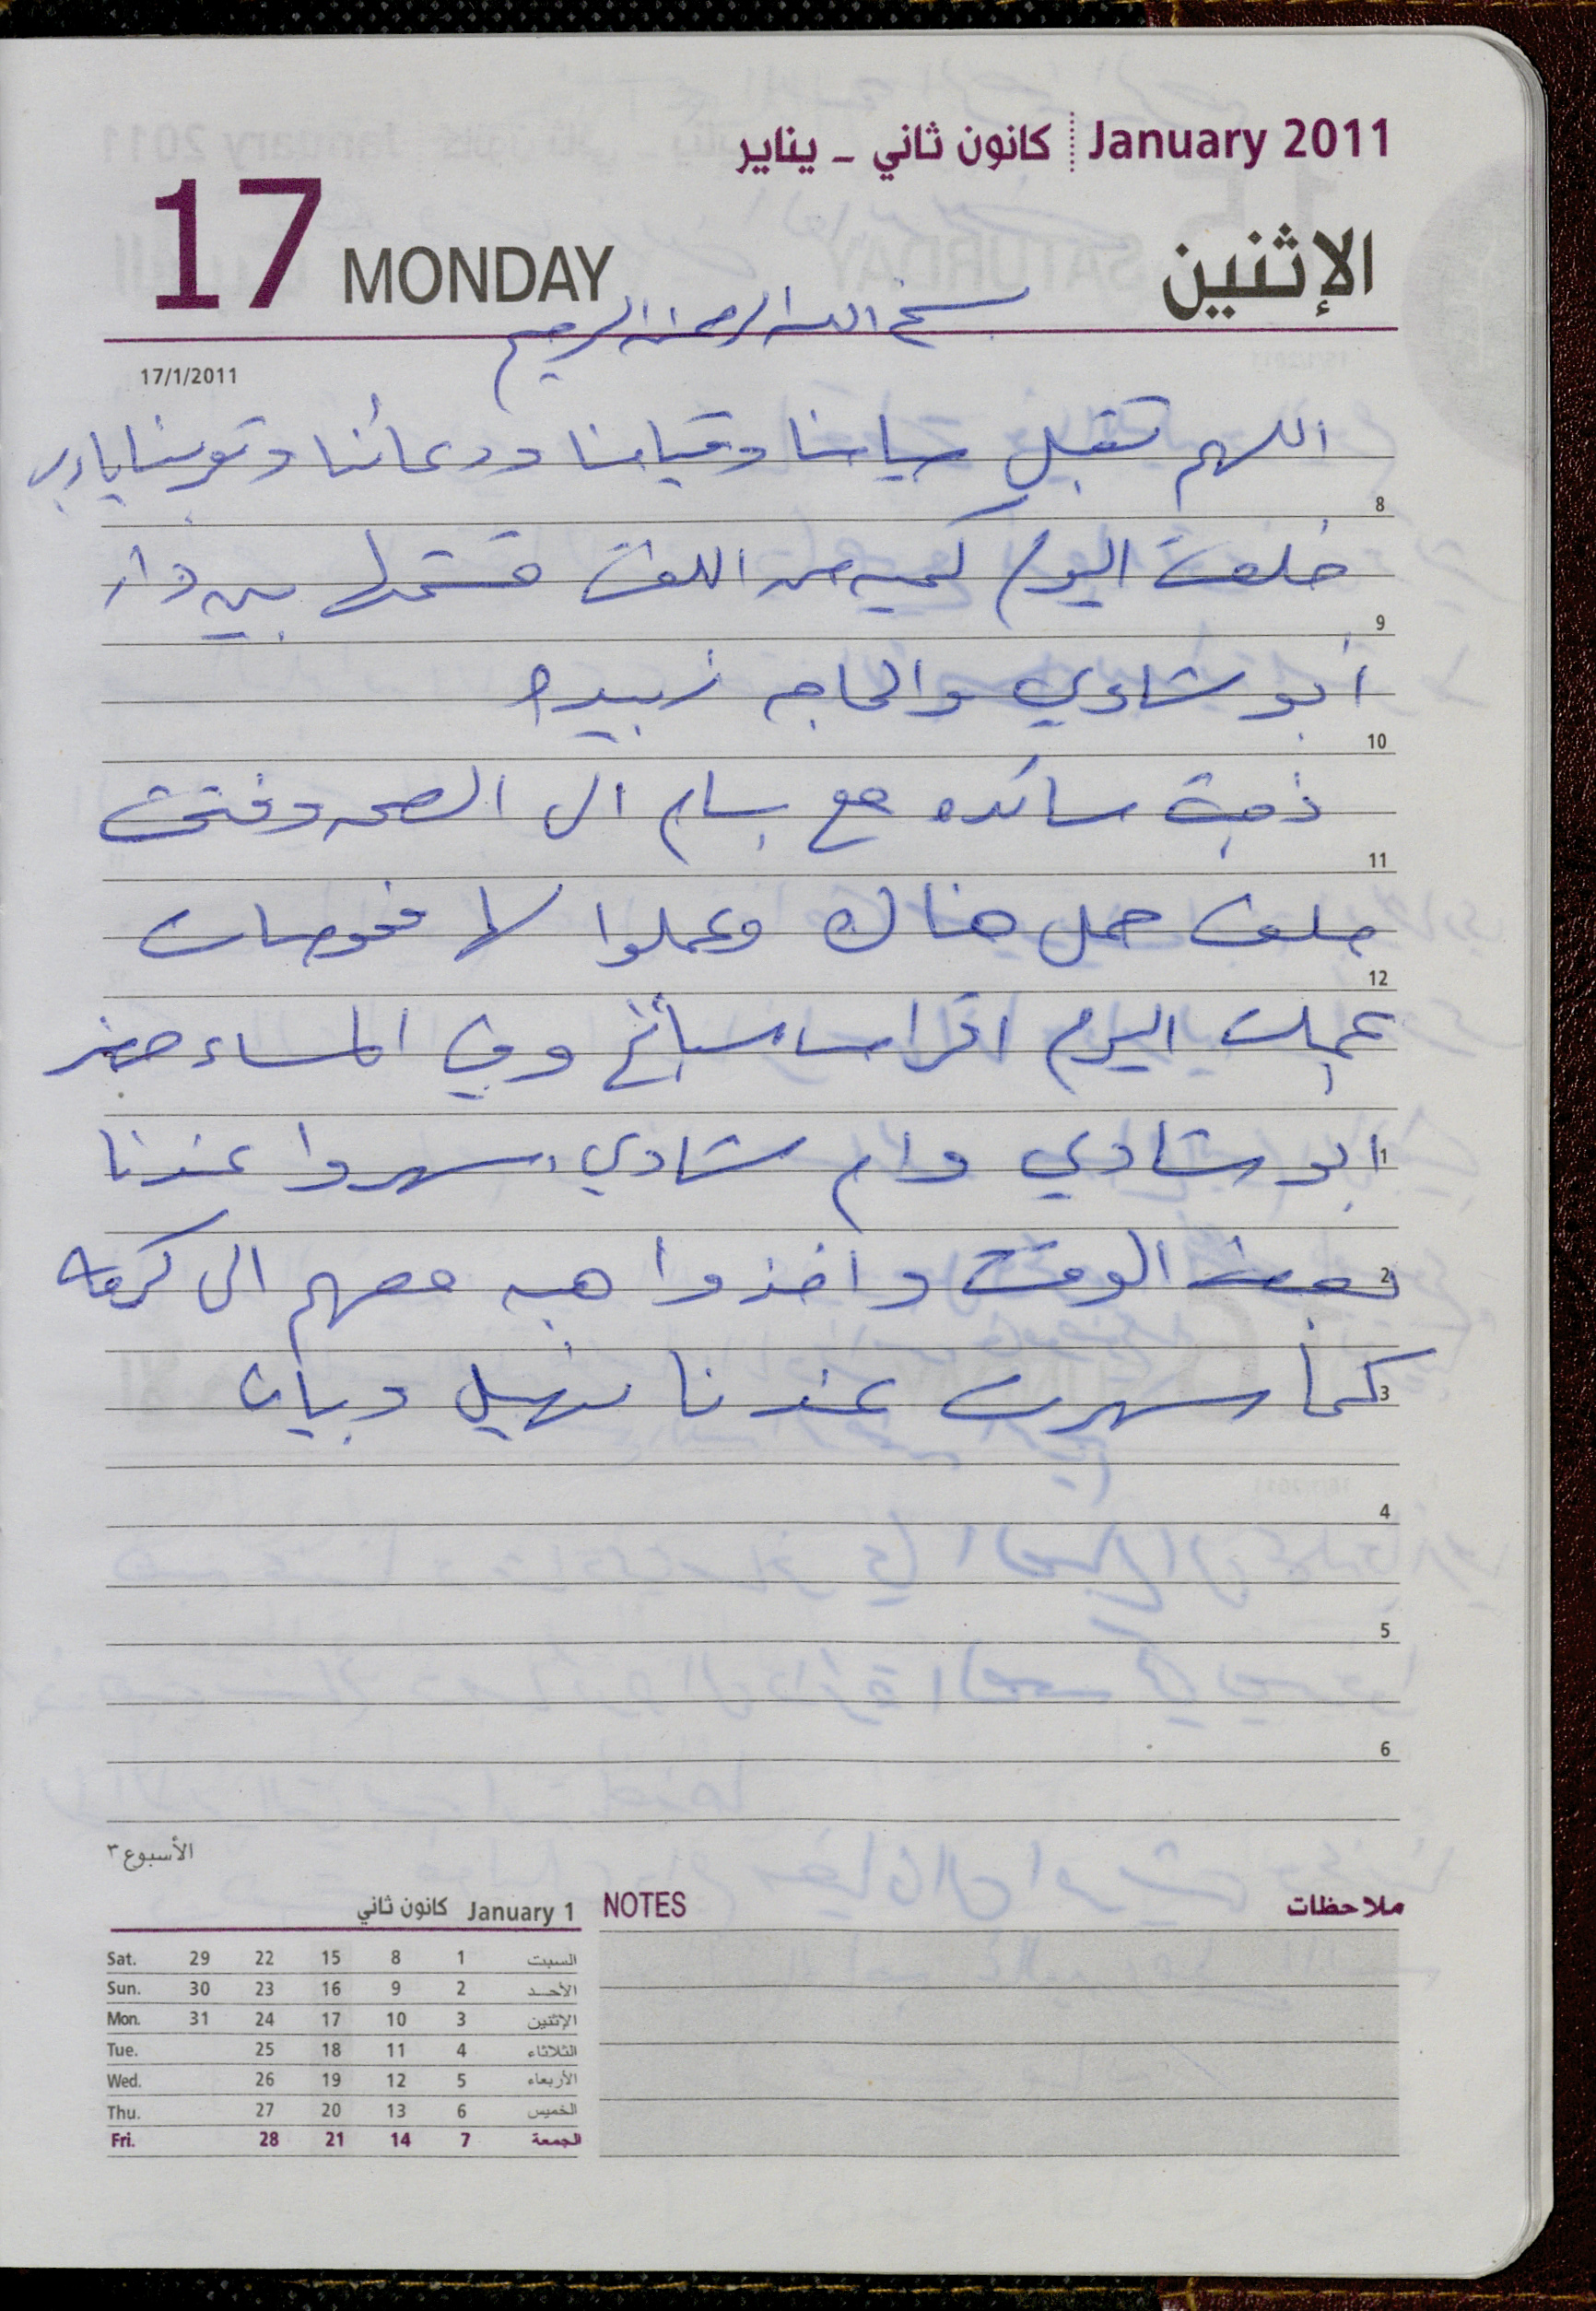 January 2011 كانون ثاني - يناير
17 MONDAY الإثنين
بسم الله الرحمن الرحيم
17/1/2011
اللهم تقبل صيامنا وقيامنا ودعائنا وتوبتنا يارب
8
خلعت اليوم كميه من اللفت قسمتها بين دار
9
أبو شادي والحاجه زبيده
10
ذهبت سائده مع بسام الى الصحه وفتحت
11
ملف حمل هناك وعملوا لها فحوصات
12
عملت اليوم اقراص سبانخ وفي المساء حضر
1
ابو شادي وام شادي سهروا عندنا
2
بعض الوقت واخذوا هبه معهم الى كرمه
3
كما سهرت عندنا نهيل وبيان
4
5
6
الأسبوع ٣
January 1 كانون ثاني
Sat. 29 22 15 8 1 السبت
Sun. 30 23 16 9 2 الأحـد
Mon. 31 24 17 10 3 الإثنين
Tue. 25 18 11 4 الثلاثاء
Wed. 26 19 12 5 الأربعاء
Thu. 27 20 13 6 الخميس
Fri. 28 21 14 7 الجمعة
NOTES ملاحظات